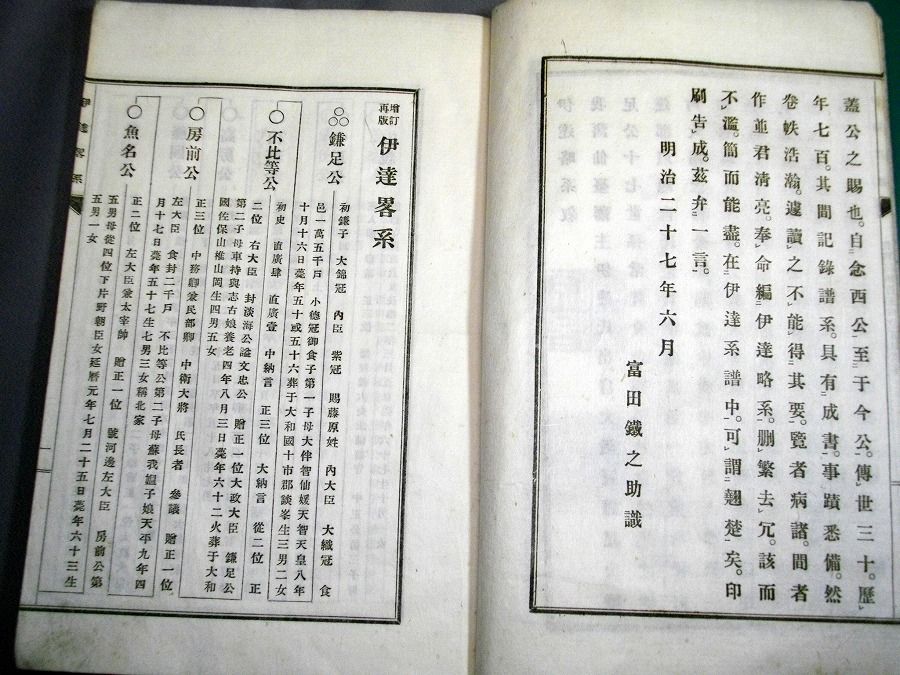 蓋公之賜也。自念西公至于今公。傳世三十。歷
年七百。其間記錄譜系。具有成書。事蹟悉備。然
卷帙浩瀚。遽讀之不能得其要。覽者病諸。間者
作並君清亮。奉命編伊達略系。刪繁去冗。該而
不濫。簡而能盡。在伊達系譜中。可謂翹楚矣。印
刷告成。茲弁一言。
明治二十七年六月
富田鐵之助識
增訂再版 伊達畧系
○○○鎌足公
初鎌子 大錦冠 內臣 紫冠 賜藤原姓 內大臣 大織冠 食
邑一萬五千戶 小德冠御食子第一子母大伴智仙媛天智天皇八年
十月十六日薨年五十或五十六葬于大和國十市郡談峯生三男二女
○不比等公
初史 直廣肆 直廣壹 中納言 正三位 大納言 從二位 正
二位 右大臣 封淡海公諡文忠公 贈正一位大政大臣 鎌足公
第二子母車持與志古娘養老四年八月三日薨年六十二火葬于大和
國佐保山椎山岡生四男五女
○房前公
正三位 中務卿兼民部卿 中衛大將 氏長者 參議 贈正一位
左大臣 食封二千戶 不比等公第二子母蘇我媼子娘天平九年四
月十七日薨年五十七生七男三女稱北家
○魚名公
正二位 左大臣兼太宰帥 贈正一位 號河邊左大臣 房前公第
五男母從四位下片野朝臣女延曆元年七月二十五日薨年六十三生
五男一女
伊達畧系